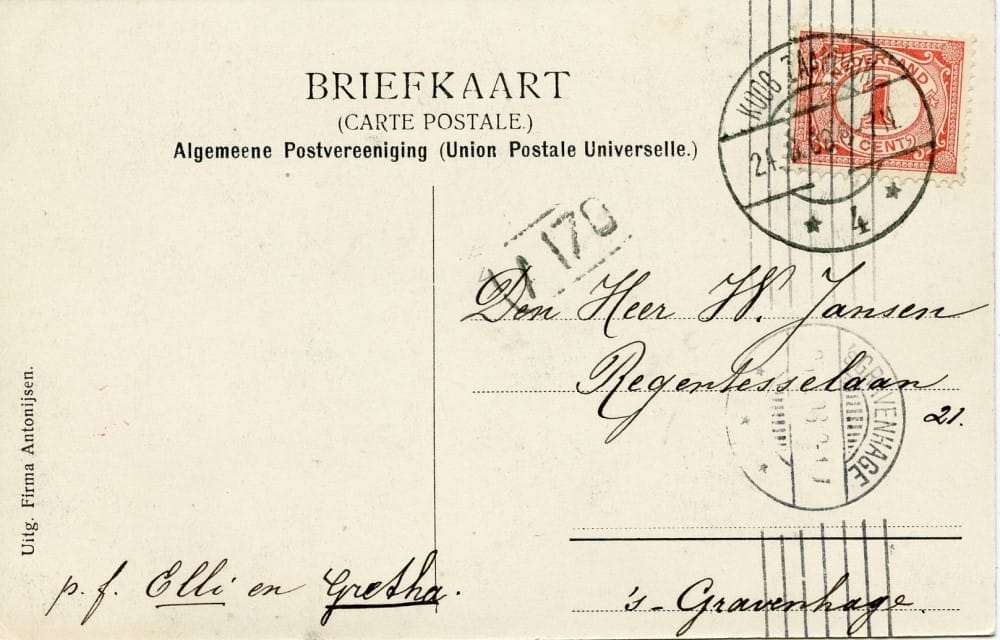 BRIEFKAART
(CARTE POSTALE.)
Algemeene Postvereeniging (Union Postale Universelle.)
NEDERLAND
1
CENT
4
170
Den Heer W. Jansen
Regentesselaan
21.
'SGRAVENHAGE
Uitg. Firma Antonijsen.
p. f. Elli en Gretha.
's-Gravenhage.